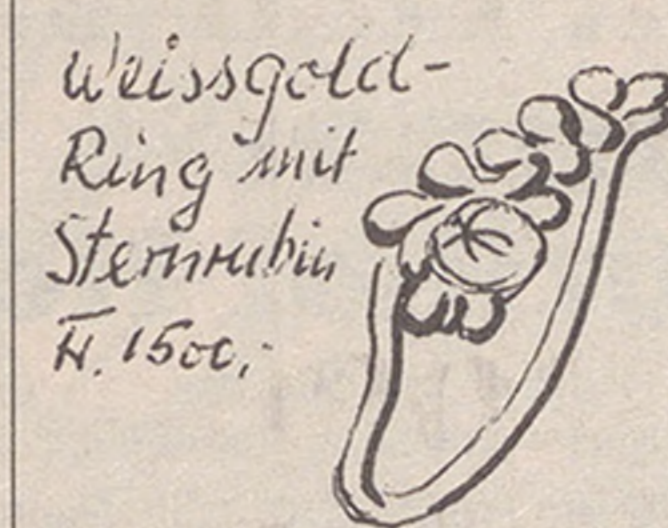 Weissgold-
Ring mit
Sternrubin
Fr. 1500.-